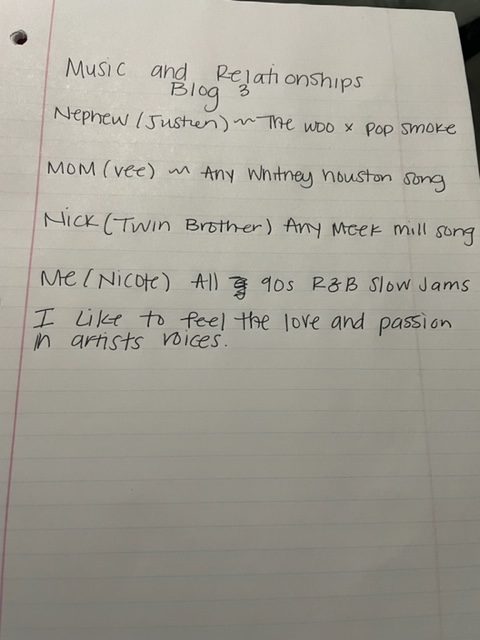 Music and Relationships
Blog 3
Nephew (Justien) ~ The woo x Pop Smoke
MOM (vee) ~ Any Whitney houston song
Nick (Twin Brother) Any Meek mill song
Me (Nicole) All 90s R&B Slow Jams
I Like to feel the love and passion
in artists voices.